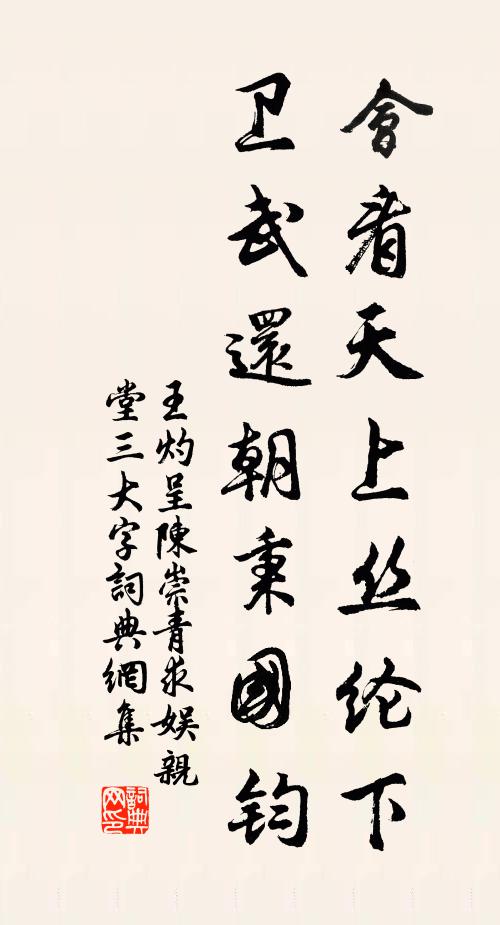 會看天上丝纶下
卫武還朝秉國鈞
王灼呈陳崇青求娱親
堂三大字詞典網集
詞典网印